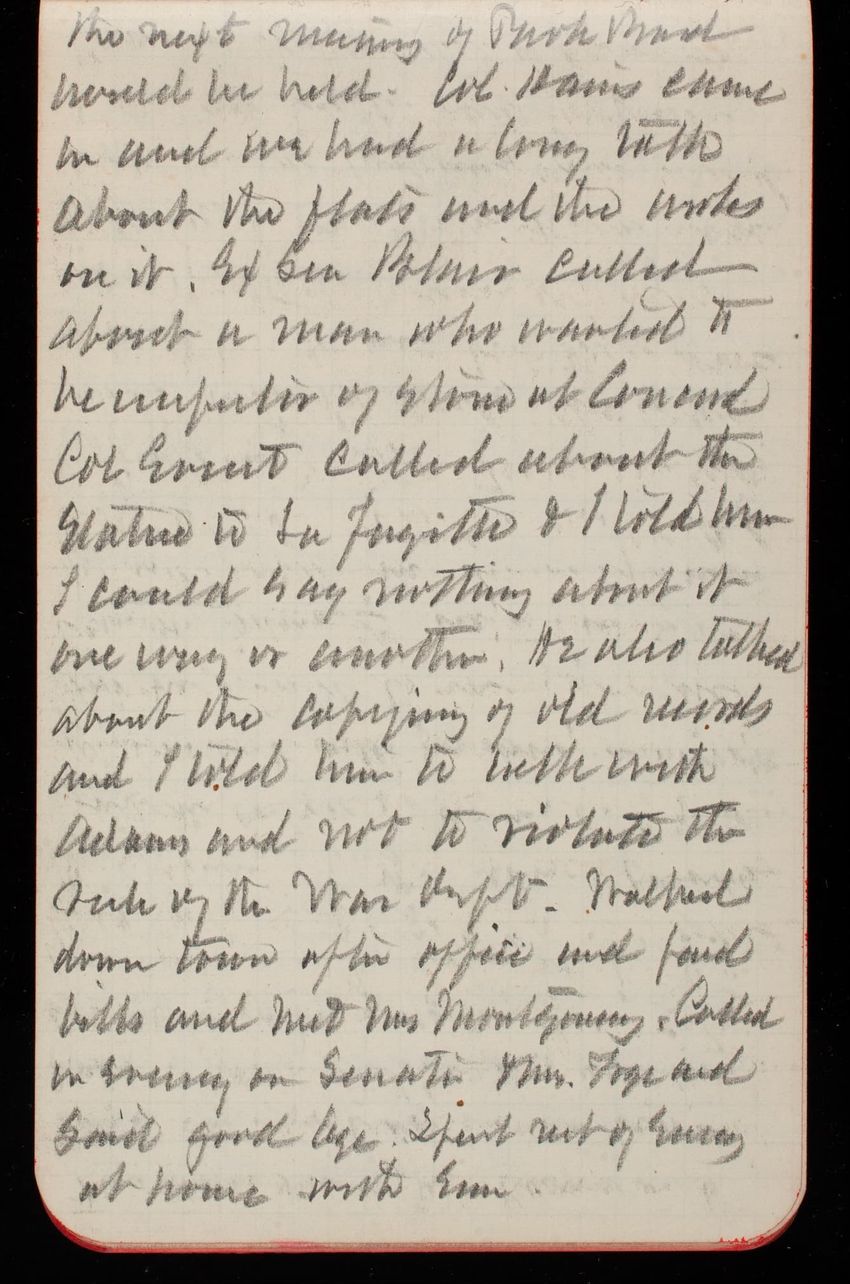 the next meeting of Park Board
would be held. Col. Hains came
in and we had a long talk
about the flats and the works
on it. Ex Sen Blair called
about a man who wanted to
be inspector of stone at Concord
Col Ernst called about the
Statue to La Fayitte & I told him
I could say nothing about it
one way or another. He also talked
about the copying of old records
and I told him to talk with
Adams and not to violate the
rule of the War Dept. Walked
down town after office and paid
bills and met Mrs Montgomery. Called
in evening on Senator & Mrs. and
Said good bye. Spent rest of Evening
at home with Em